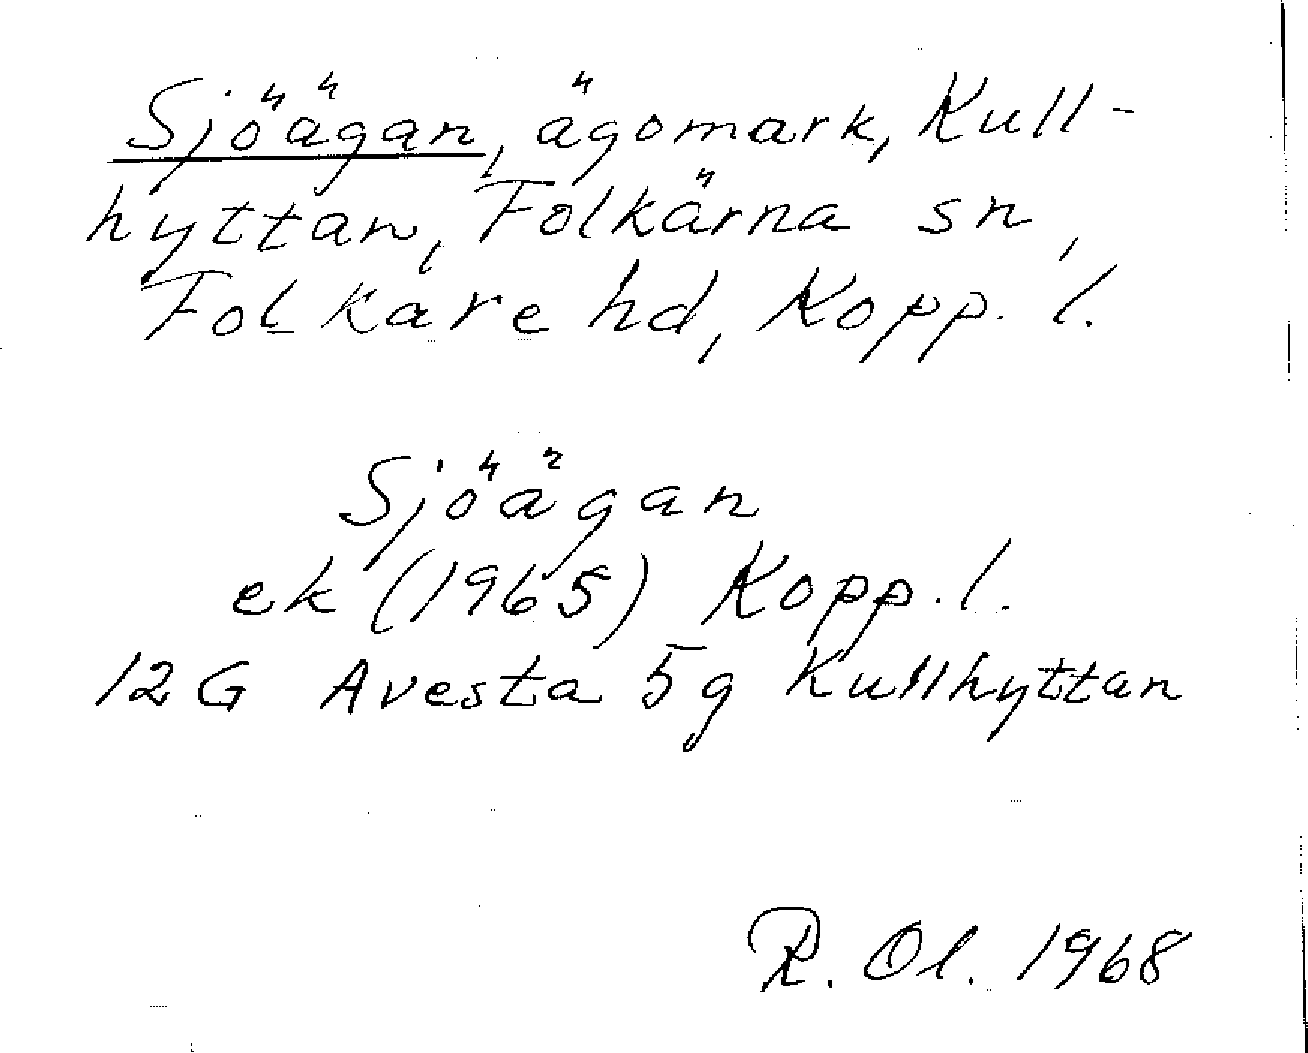 Sjöägan, ägomark, Kull-
hyttan, Folkärna sn,
Folkare hd, Kopp. l.
Sjöägan
ek (1965) Kopp. l.
12G Avesta 5g Kullhyttan
R. Ol. 1968